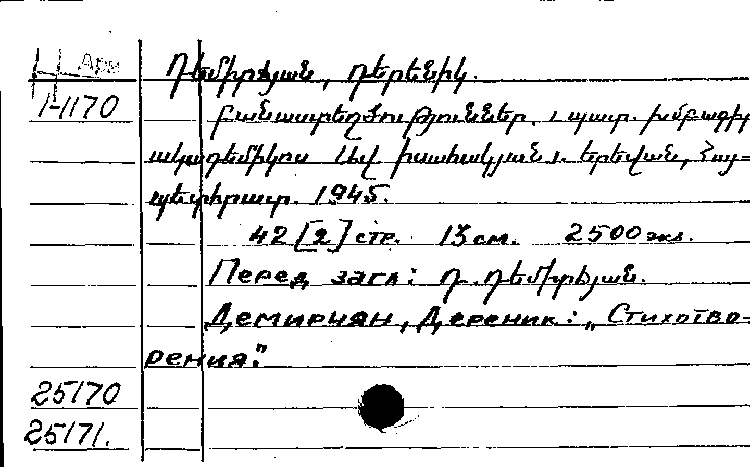 Арм
Դեմիրճյան, Դերենիկ.
1-1170
Բանաստեղծություններ. ։ պատ. խմբագիր
ակադեմիկոս Ավ Իսահակյան։. Երեվան, Հայ-
պետհրատ. 1945.
42 [2] стр. 13 см. 2500 экз.
Перед загл: Դ. Դեմիրճյան.
Демирчян, Дереник: „Стихотво-
рения".
25170
25171.